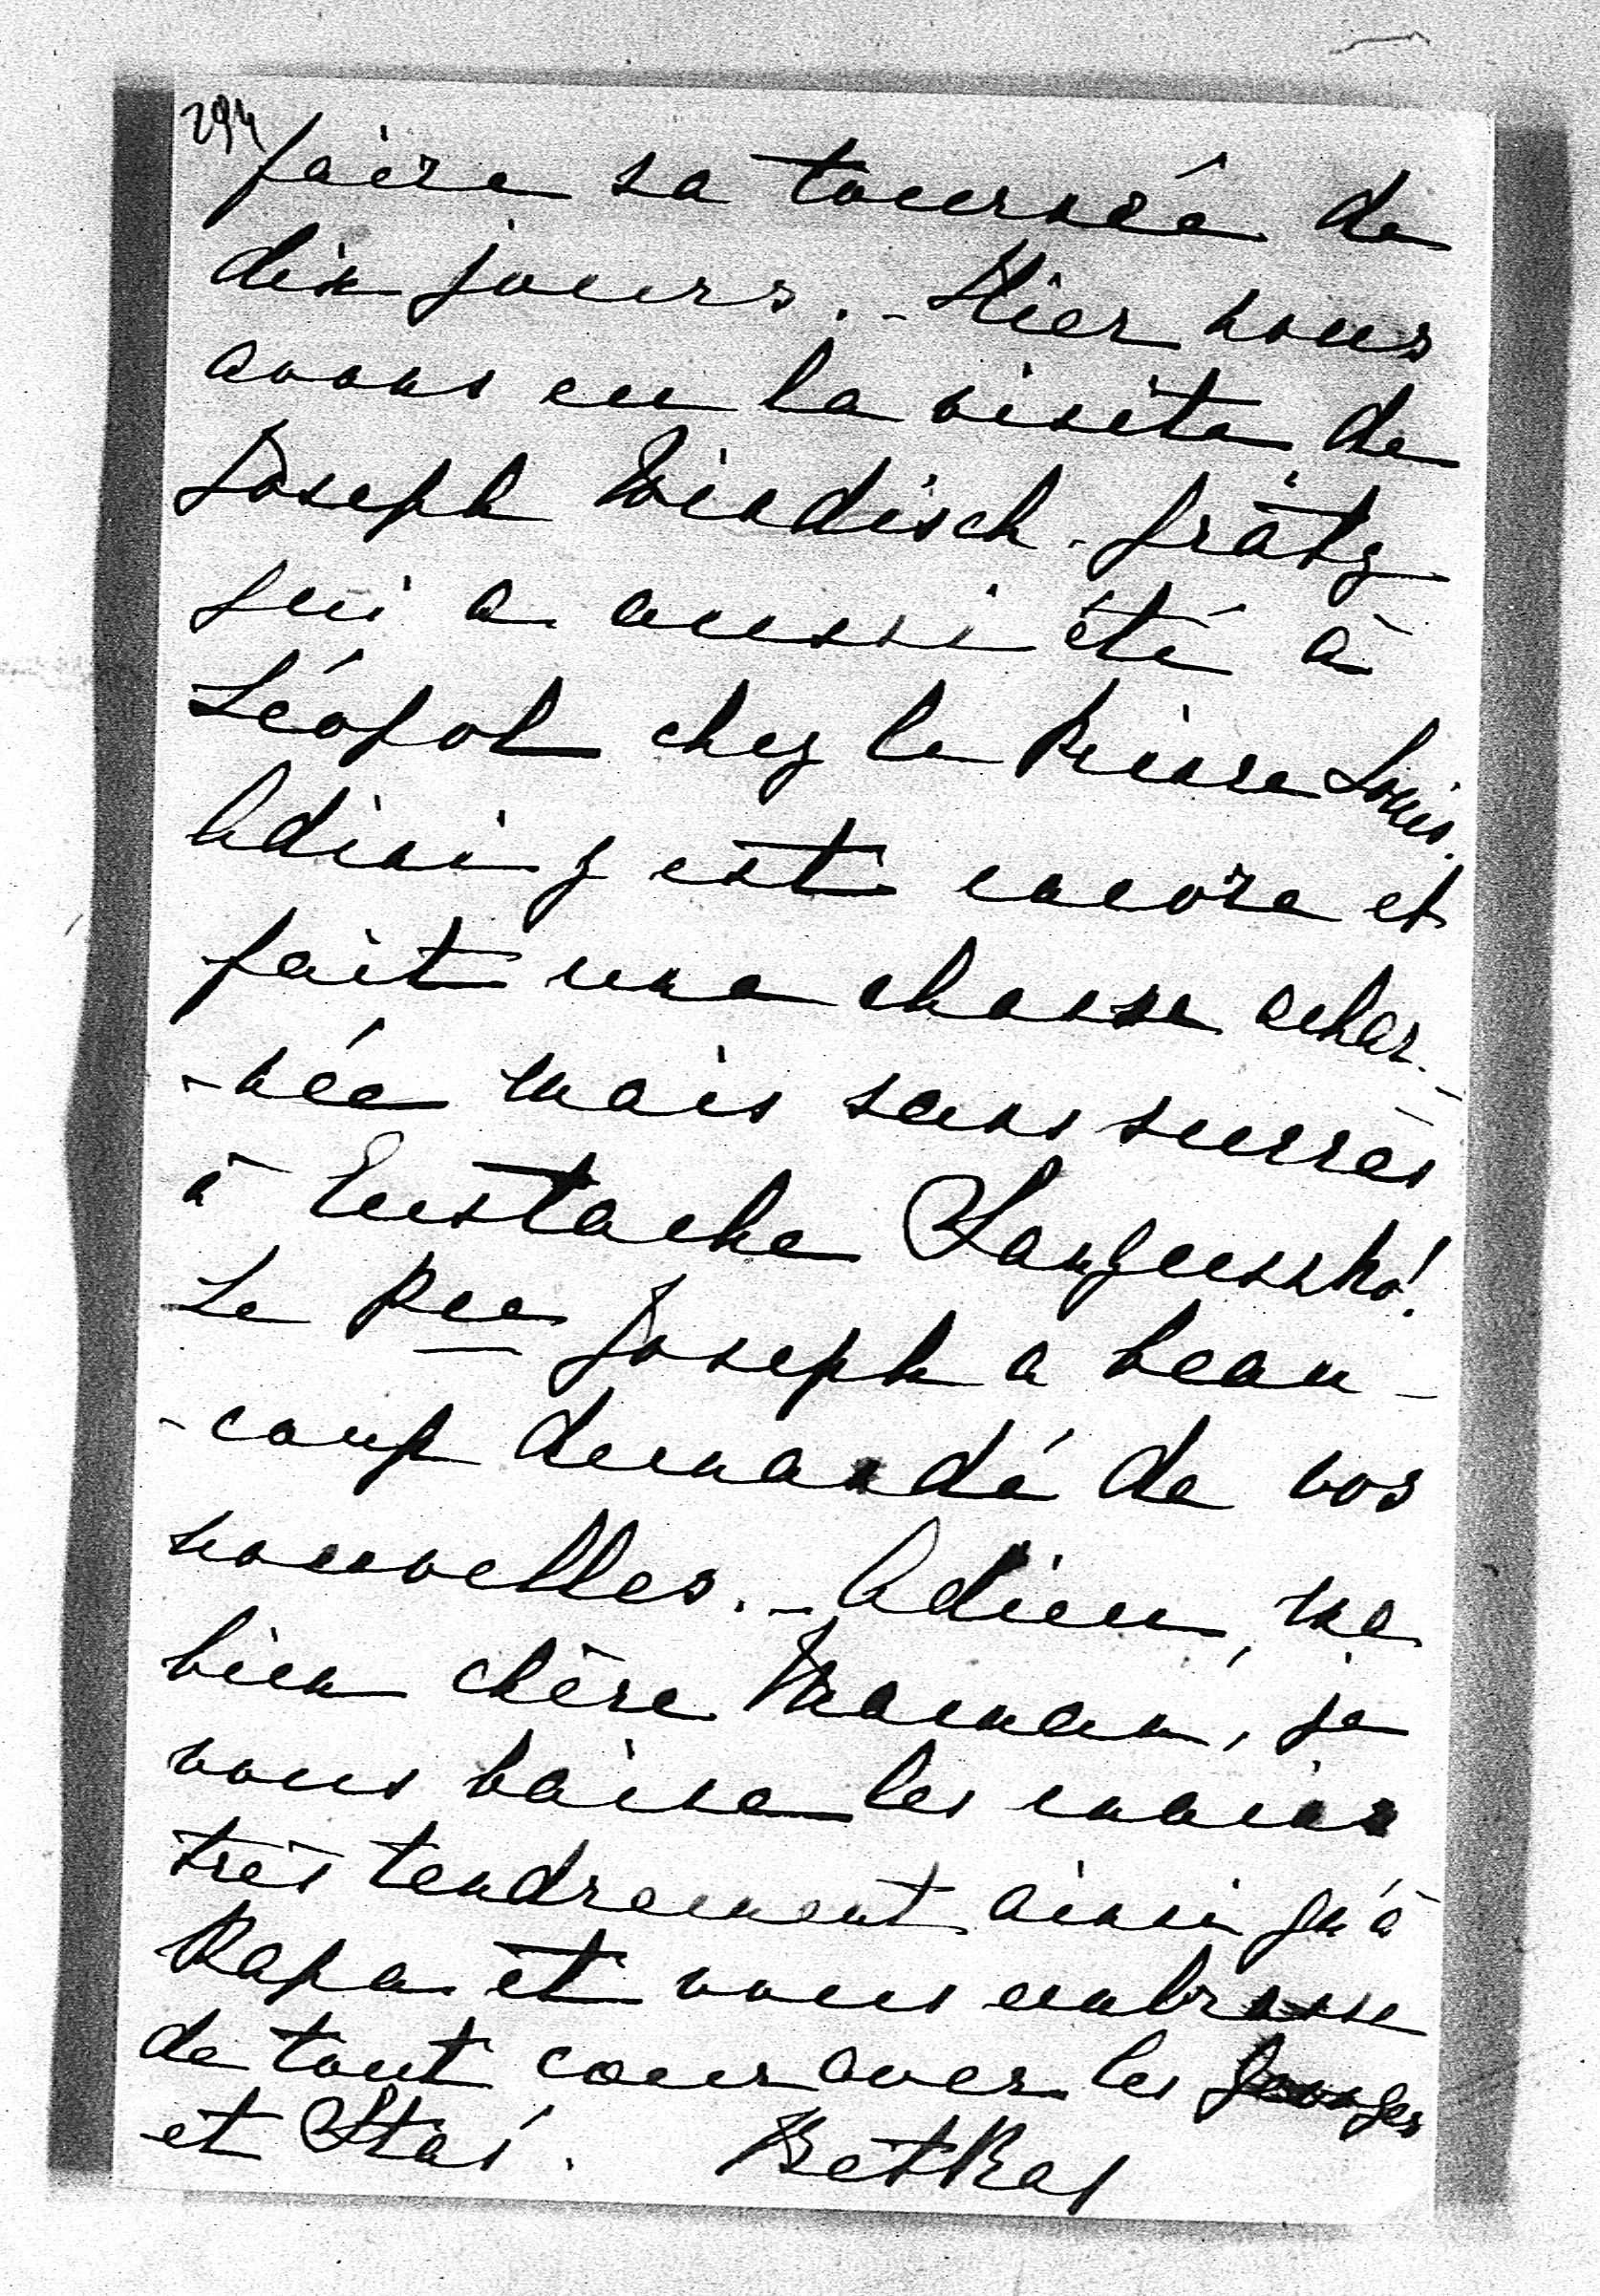 294
faire sa tournée de
dix jours. - Hier nous
avons eu la visite de
Joseph Windisch-Grätz
qui a aussi été à
Léopol chez le Prince Louis.
Adini y est encore et
fait une chasse achar-
-née mais sans succès
à Eustache Sanguszko!
Le Pce Joseph a beau-
-coup demandé de vos
nouvelles. - Adieu, ma
bien chère Maman, je
vous baise les mains
très tendrement ainsi qu'à
Papa et vous embrasse
de tout coeur avec les Georges
et Staś. BetKa